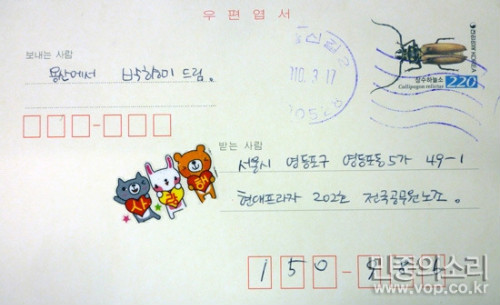 우편엽서
보내는 사람
용산에서 박향미 드림.
10.3.17
대한민국 KOREA
장수하늘소
Callipogon relictus
220
받는 사람
서울시 영등포구 영등포동5가 49-1
현대프라자 202호 전국공무원노조.
사 랑 해
150-
민중의소리
www.vop.co.kr